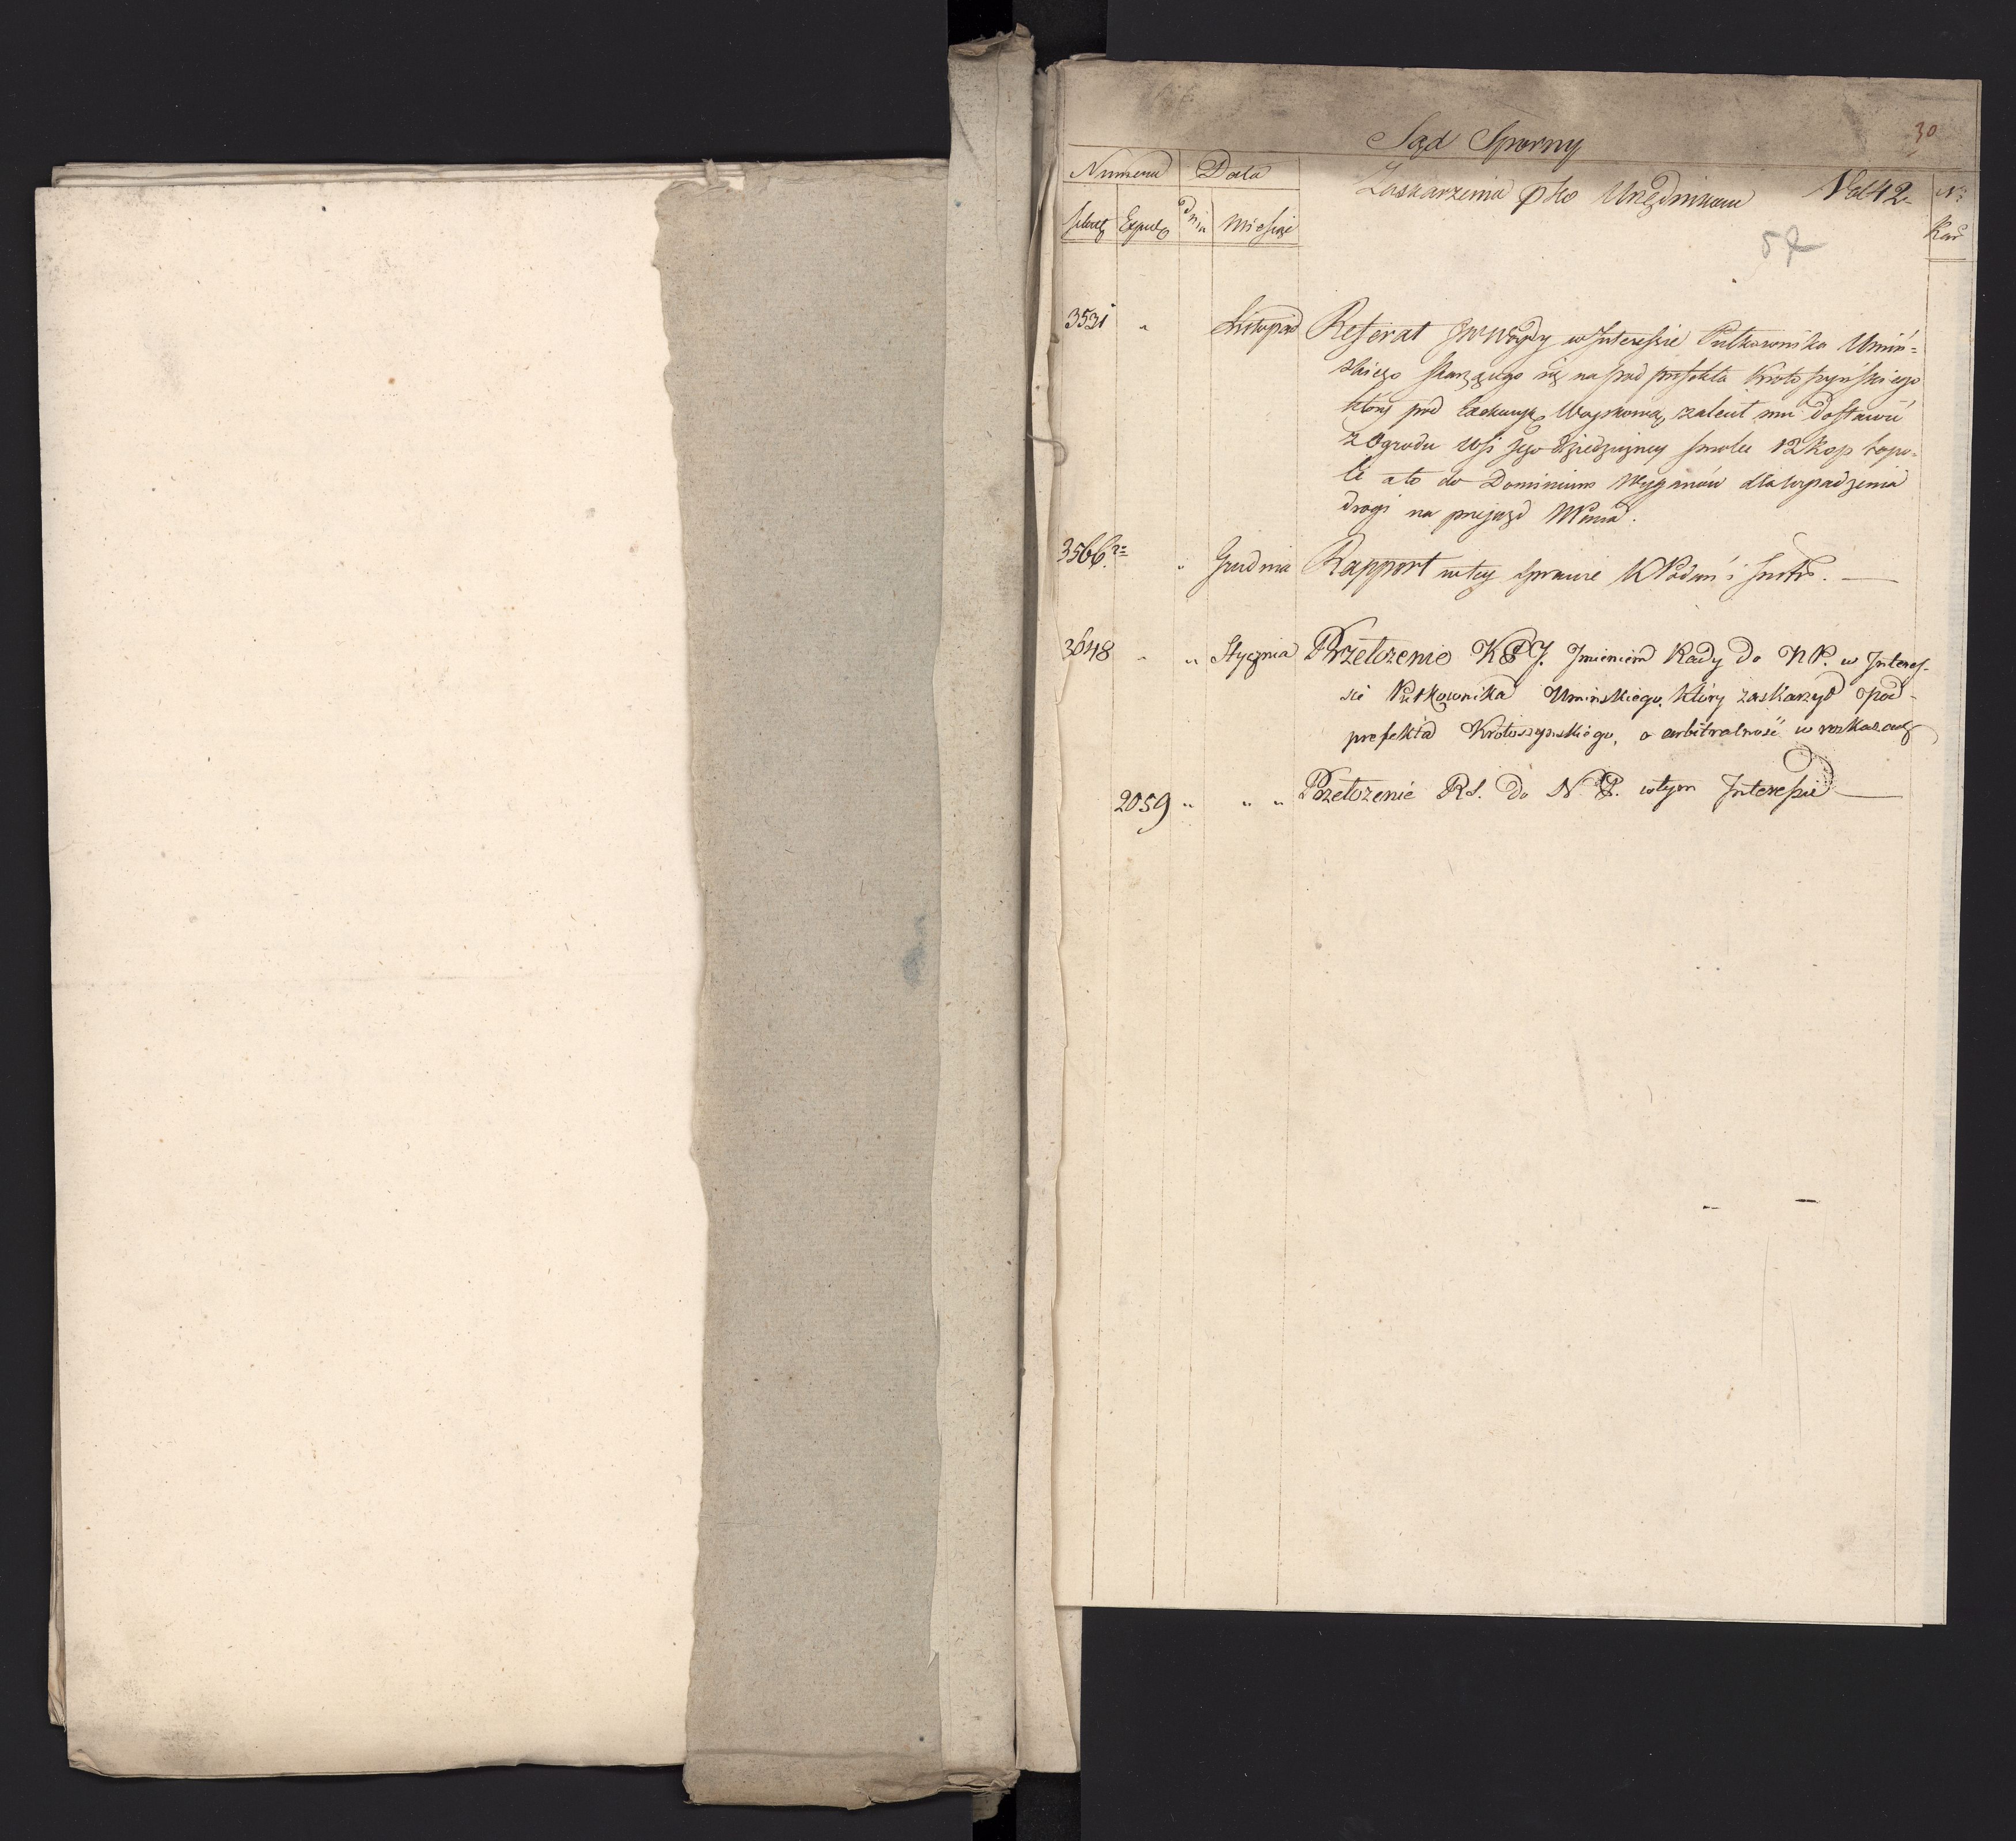 30
Sąd Sporny
Numera Data
Zaskarzenia pko Urzędnikom Nol 42. No
Exped dnia Miesiąc
Kar
57
3531 " Listopad Referat w Interessie Pułkownika Umiń=
skiego skarzącego się na pod prefekta Krotoszyńskiego
który pod Exekucyą Woyskową zalecił mu dostawić
z Ogrodu Wsi Jego dziedziczney Smolic 12 kop topo-
li a to do Dominium Wyganów dla wysadzenia
drogi na przejazd NPana.
3566. " Grudnia Rapport wtey sprawie K Podań i Instr. —
3648 " " Stycznia Przełozenie KPJ. Imieniem Rady do NP. w Interes-
sie Pułkownika Uminskiego, który zaskarzył pod-
prefekta Krotoszynskiego, o arbitralność w roskazach
2059 " " " Przełozenie RS. do N. P. wtym Interessie —